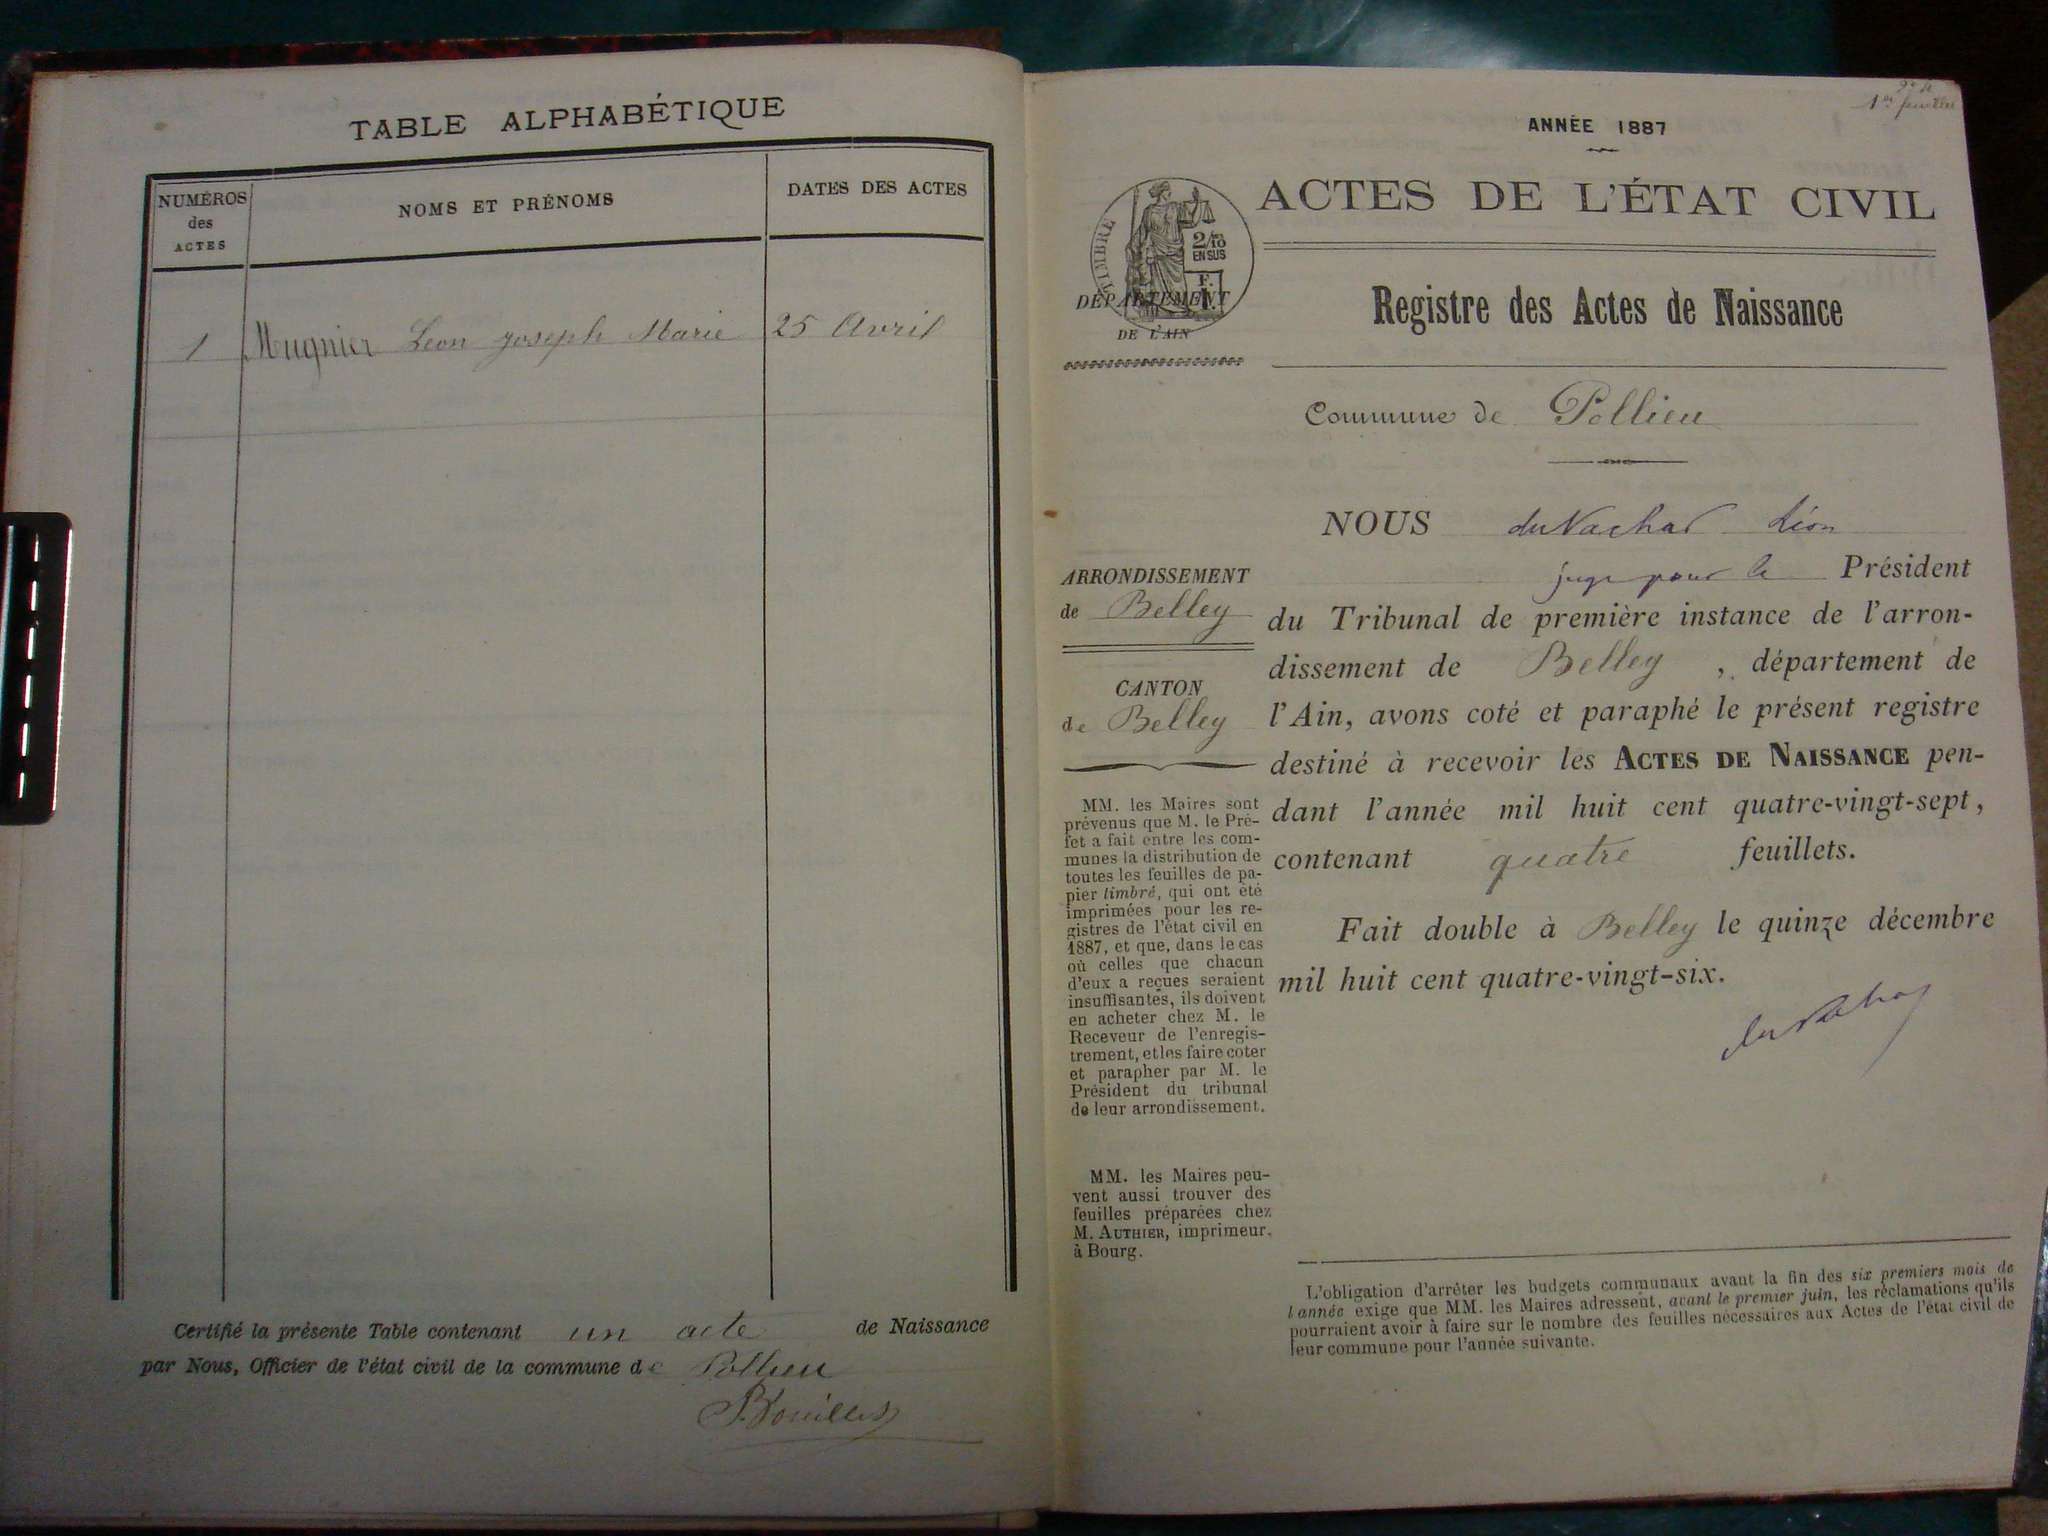 TABLE ALPHABÉTIQUE
NUMÉROS
des
ACTES
NOMS ET PRÉNOMS
DATES DES ACTES
1 Mugnier Leon Joseph Marie 25 Avril
Certifié la présente Table contenant un acte de Naissance
par Nous, Officier de l'état civil de la commune de Pollieu
1er feuillet
ANNÉE 1887
ACTES DE L'ÉTAT CIVIL
TIMBRE
2/10
EN SUS
DÉPARTEMENT
DE L'AIN
Registre des Actes de Naissance
Commune de Pollieu
ARRONDISSEMENT
de Belley
CANTON
de Belley
MM. les Maires sont
prévenus que M. le Pré-
fet a fait entre les com-
munes la distribution de
toutes les feuilles de pa-
pier timbré, qui ont été
imprimées pour les re-
gistres de l'état civil en
1887, et que, dans le cas
où celles que chacun
d'eux a reçues seraient
insuffisantes, ils doivent
en acheter chez M. le
Receveur de l'enregis-
trement, et les faire coter
et parapher par M. le
Président du tribunal
de leur arrondissement.
MM. les Maires peu-
vent aussi trouver des
feuilles préparées chez
M. AUTHIER, imprimeur,
à Bourg.
NOUS Léon
juge pour le Président
du Tribunal de première instance de l'arron-
dissement de Belley, département de
l'Ain, avons coté et paraphé le présent registre
destiné à recevoir les ACTES DE NAISSANCE pen-
dant l'année mil huit cent quatre-vingt-sept,
contenant quatre feuillets.
Fait double à Belley le quinze décembre
mil huit cent quatre-vingt-six.
L'obligation d'arrêter les budgets communaux avant la fin des six premiers mois de
l'année exige que MM. les Maires adressent, avant le premier juin, les réclamations qu'ils
pourraient avoir à faire sur le nombre des feuilles nécessaires aux Actes de l'état civil de
leur commune pour l'année suivante.